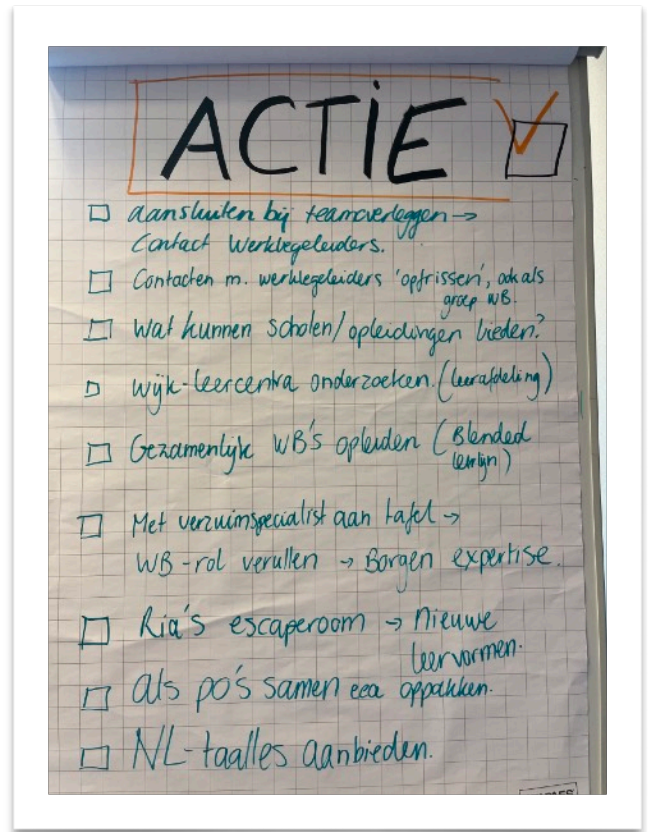 ACTIE
aansluiten bij teamoverleggen →
Contact Werkbegeleiders.
Contacten m. werkbegeleiders 'opfrissen', ook als
groep WB.
Wat kunnen scholen/opleidingen bieden?
wijk-leercentra onderzoeken. (leerafdeling)
Gezamenlijk WB's opleiden (Blended
leerlijn)
Met verzuimspecialist aan tafel →
WB-rol verullen → Borgen expertise.
Ria's escaperoom → nieuwe
leervormen.
als po's samen eea oppakken.
NL-taalles aanbieden.